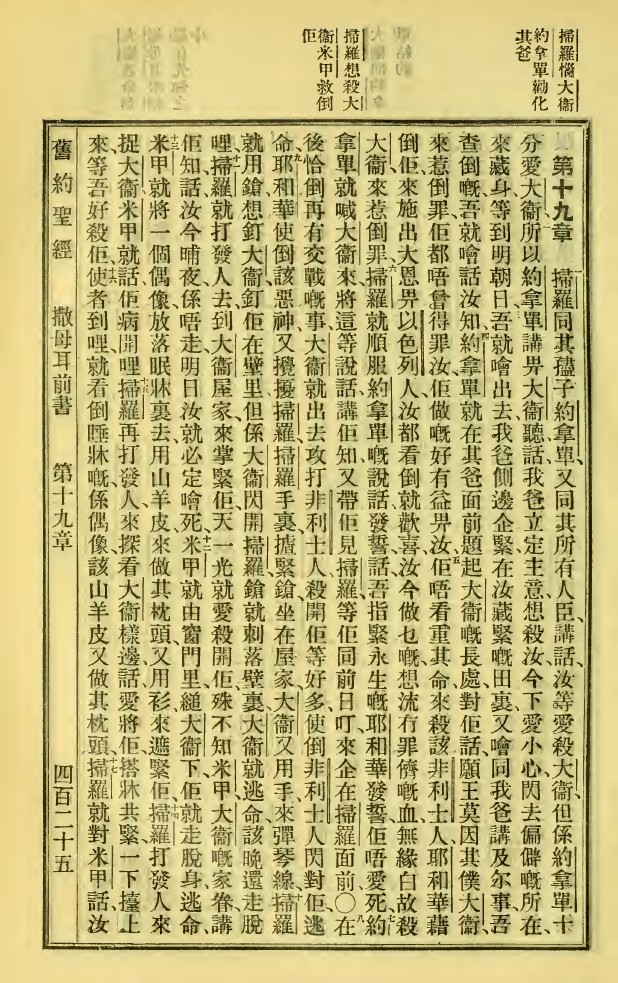 掃羅惱大衞
約拿單勸化
其爸
掃羅想殺大
衞米甲救倒
佢
第十九章　一掃羅同其孻子約拿單、又同其所有人臣講話、汝等愛殺大衞、但係約拿單十
分愛大衞、所以約拿單講畀大衞聽話、我爸立定主意想殺汝、今下愛小心、閃去偏僻嘅所在、
來藏身、等到明朝日、吾就噲出去我爸側邊企緊、在汝藏緊嘅田裏、又噲同我爸講及尔事、吾
查倒嘅、吾就噲話汝知、約拿單就在其爸面前題起大衞嘅長處、對佢話、願王莫因其僕大衞、
來惹倒罪、佢都唔曾得罪汝、佢做嘅好有益畀汝、五佢唔看重其命、來殺該非利士人、耶和華藉
倒佢來施出大恩畀以色列人、汝都看倒就歡喜、汝今做乜嘅想流冇罪儕嘅血、無緣白故殺
大衞來惹倒罪、六掃羅就順服約拿單嘅說話、發誓話、吾指緊永生嘅耶和華發誓、佢唔愛死、七約
拿單就喊大衞來、將這等說話講佢知、又帶佢見掃羅、等佢同前日叮來企在掃羅面前、○八在
後恰倒再有交戰嘅事、大衞就出去攻打非利士人、殺開佢等好多、使倒非利士人閃對佢逃
命、九耶和華使倒該惡神、又攪擾掃羅、掃羅手裏揸緊鎗坐在屋家、大衞又用手來彈琴線、十掃羅
就用鎗想釘大衞、釘佢在壁里、但係大衞閃開、掃羅鎗就刺落壁裏、大衞就逃命、該晚還走脫
哩、十一掃羅就打發人去到大衞屋家來掌緊佢、天一光就愛殺開佢、殊不知米甲大衞嘅家眷講
佢知話、汝今晡夜係唔走、明日汝就必定噲死、十二米甲就由窗門里縋大衞下、佢就走脫身逃命、
十三米甲就將一個偶像放落眠牀裏去、用山羊皮來做其枕頭、又用衫來遮緊佢、十四掃羅打發人來
捉大衞、米甲就話佢病開哩、十五掃羅再打發人來探看大衞樣邊、話、愛將佢搭牀共緊一下擡上
來、等吾好殺佢、十六使者到哩就看倒睡牀嘅係偶像、該山羊皮又做其枕頭、十七掃羅就對米甲話、汝
舊約聖經　撒母耳前書　第十九章　四百二十五